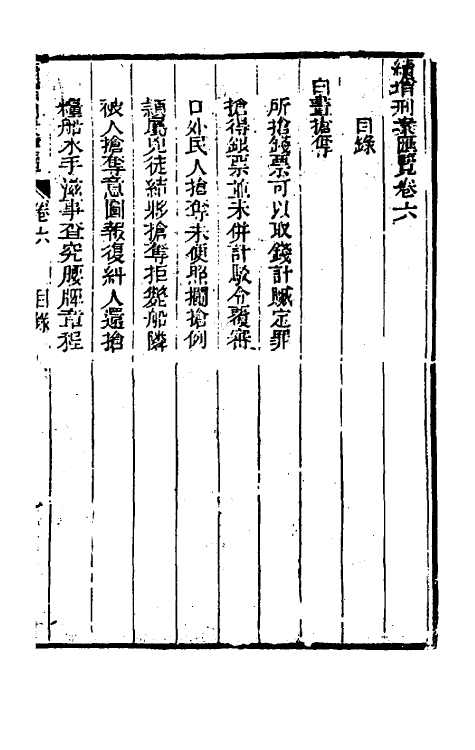 續增刑案匯覽卷六
目錄
白晝搶奪
所搶錢票可以取錢計贓定罪
搶得銀票並未併計駁令覆審
口外民人搶奪未便照攔搶例
潁屬兇徒結夥搶奪拒斃船隣
被人搶奪意圖報復糾人還搶
糧船水手滋事查究腰牌章程
卷六 目錄